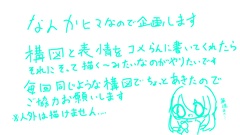 なんかヒマなので企画します
構図と表情をコメらんに書いてくれたら
それにそって描く〜みたいなのがやりたいです
毎回同じような構図でちょっとあきたので
ご協力お願いします
※人外は描けません....